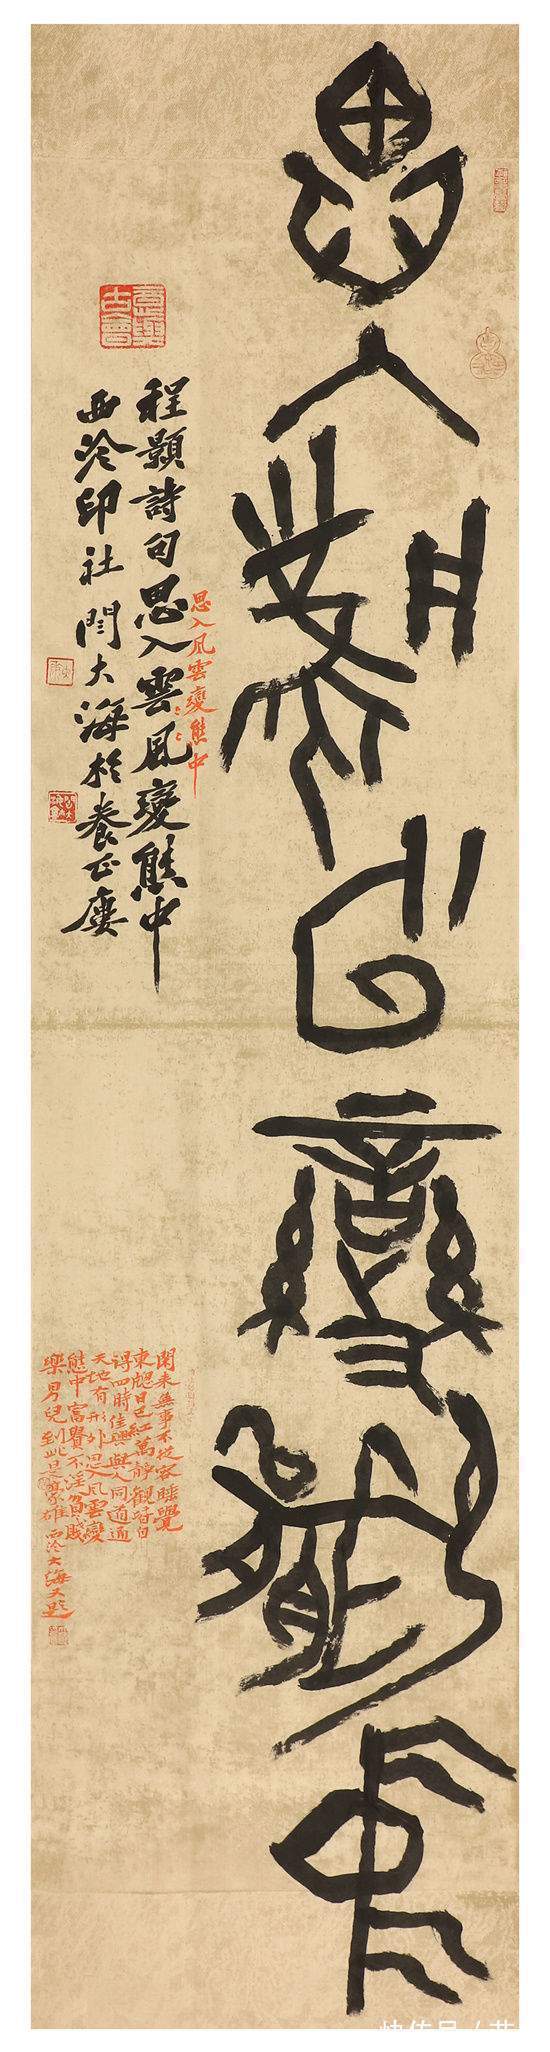 思入風雲變態中
思入風雲變態中
程顥詩句思入雲風變態中
西泠印社閆大海於養正廔
閑來無事不從容睡覺
東牕日已紅萬靜觀皆自
得四時佳興與人同道通
天地有形外思入風雲變
態中富貴不淫貧賤
樂男兒到此是豪雄西泠大海又題